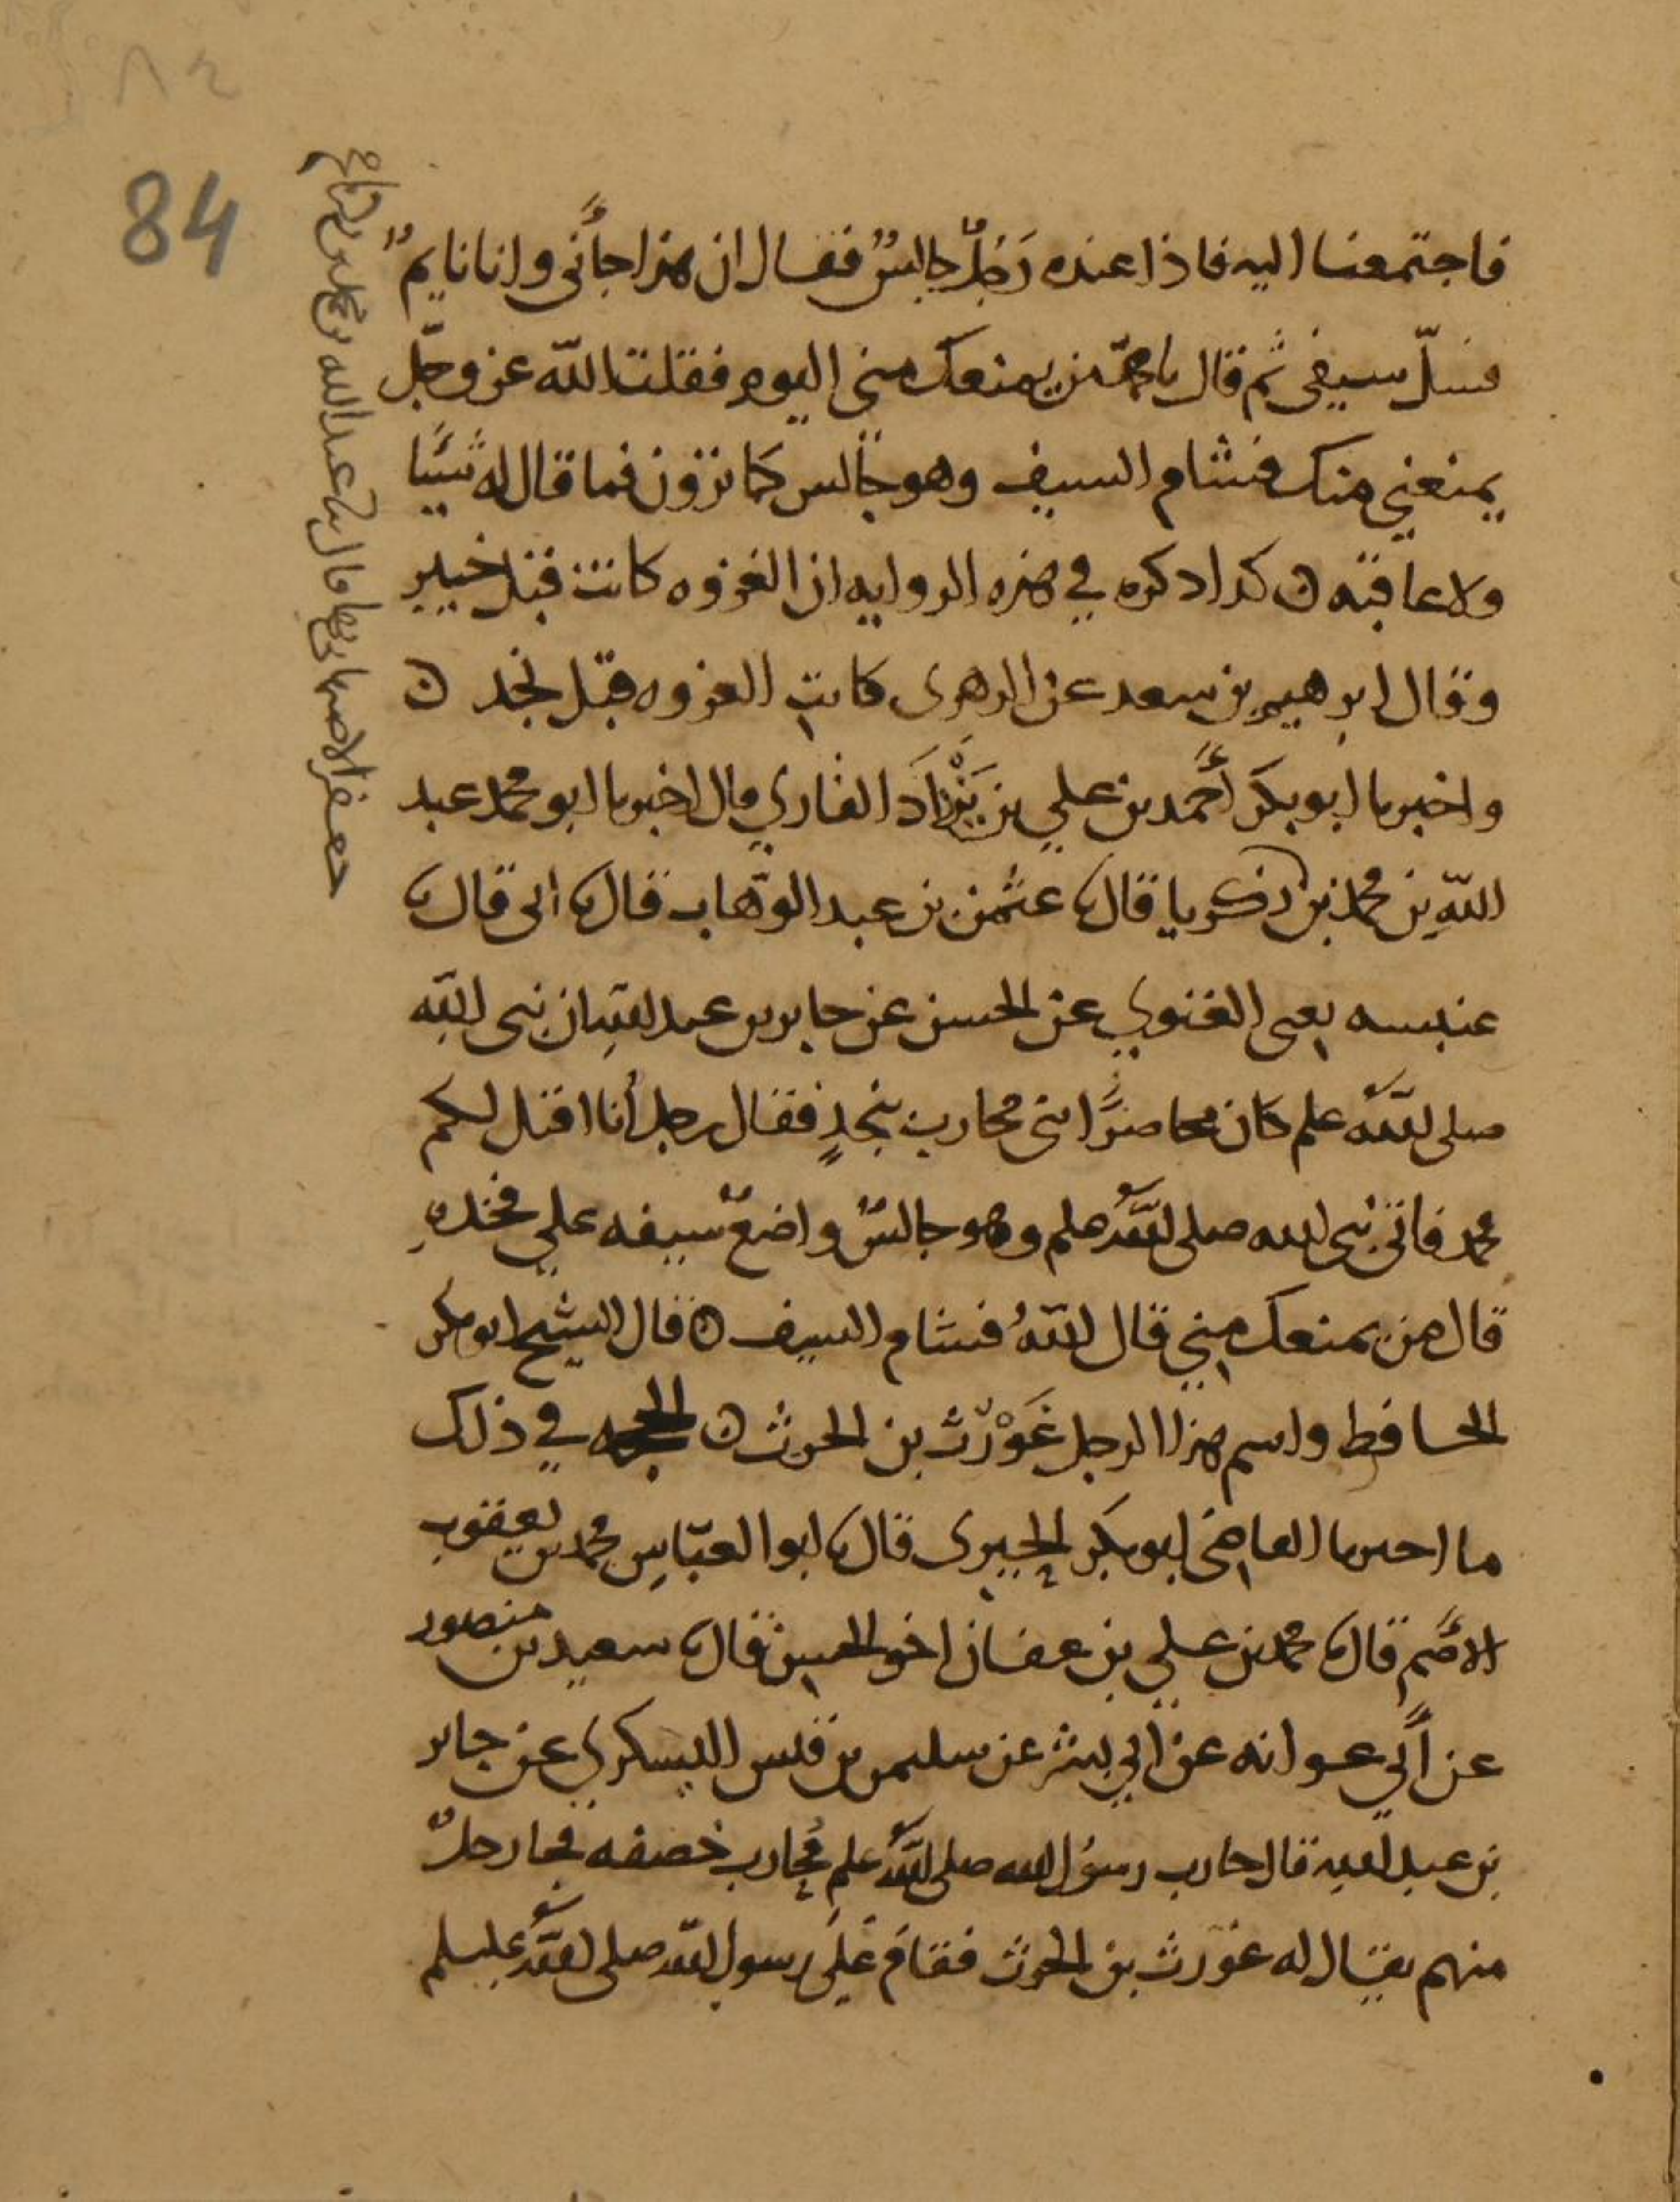 84
فاجتمعنا اليه فاذا عنده رَجُلٌ جالسٌ فقال ان هذا جأني وانا نايمٌ
فسلّ سيفي ثم قال يا محمد من يمنعك مني اليوم فقلت اللّه عز وجلّ
يمنعني منك فشام السيف وهو جالس كما ترون فما قال له شيًا
ولا عاقبه ن كدا ذكره في هذه الروايه ان الغزوه كانت قبل خيبر
وقال ابرهيم بن سعد عن الزهرى كانت الغزوه قبل نجد ن
واخبرنا ابو بكر أحمد بن علي بن يَزْدَادَ القاري قال اخبرنا ابو محمد عبد
اللّه بن محمد بن زكريا قال نا عثمن بن عبد الوهّاب قال نا ابى قال نا
عنبسه يعى الغنوي عن الحسن عن جابر بن عبد اللّه ان نبى اللّه
صلى اللّه علم كان محاصرًا بنى محارب بنجدٍ فقال رجل أنا اقتل لكم
محمد فاتى نبى الله صلى اللّه علم وهو جالسٌ واضعٌ سيفه علي فخذهِ
قال من يمنعك مني قال اللّهُ فشام السيف ن قال الشيخ ابو بكر
الحافظ واسم هذا الرجل غَوْرَث بن الحرث ن الحجه في ذلك
ما احبرنا القاضى ابو بكر الحيرى قال نا ابو العبّاس محمد بن يعقوب
الأصَم قال نا محمد بن علي بن عفان اخو الحسن قال نا سعيد بن منصور
عن أبي عوانه عن ابي بشر عن سليمن بن قيس اليسكري عن جابر
بن عبد الله قال حارب رسول الله صلى اللّه علم مُحارب خصفه فجا رجلٌ
منهم يقال له غورث بن الحرث فقام على رسول اللّه صلى اللّه عليلم